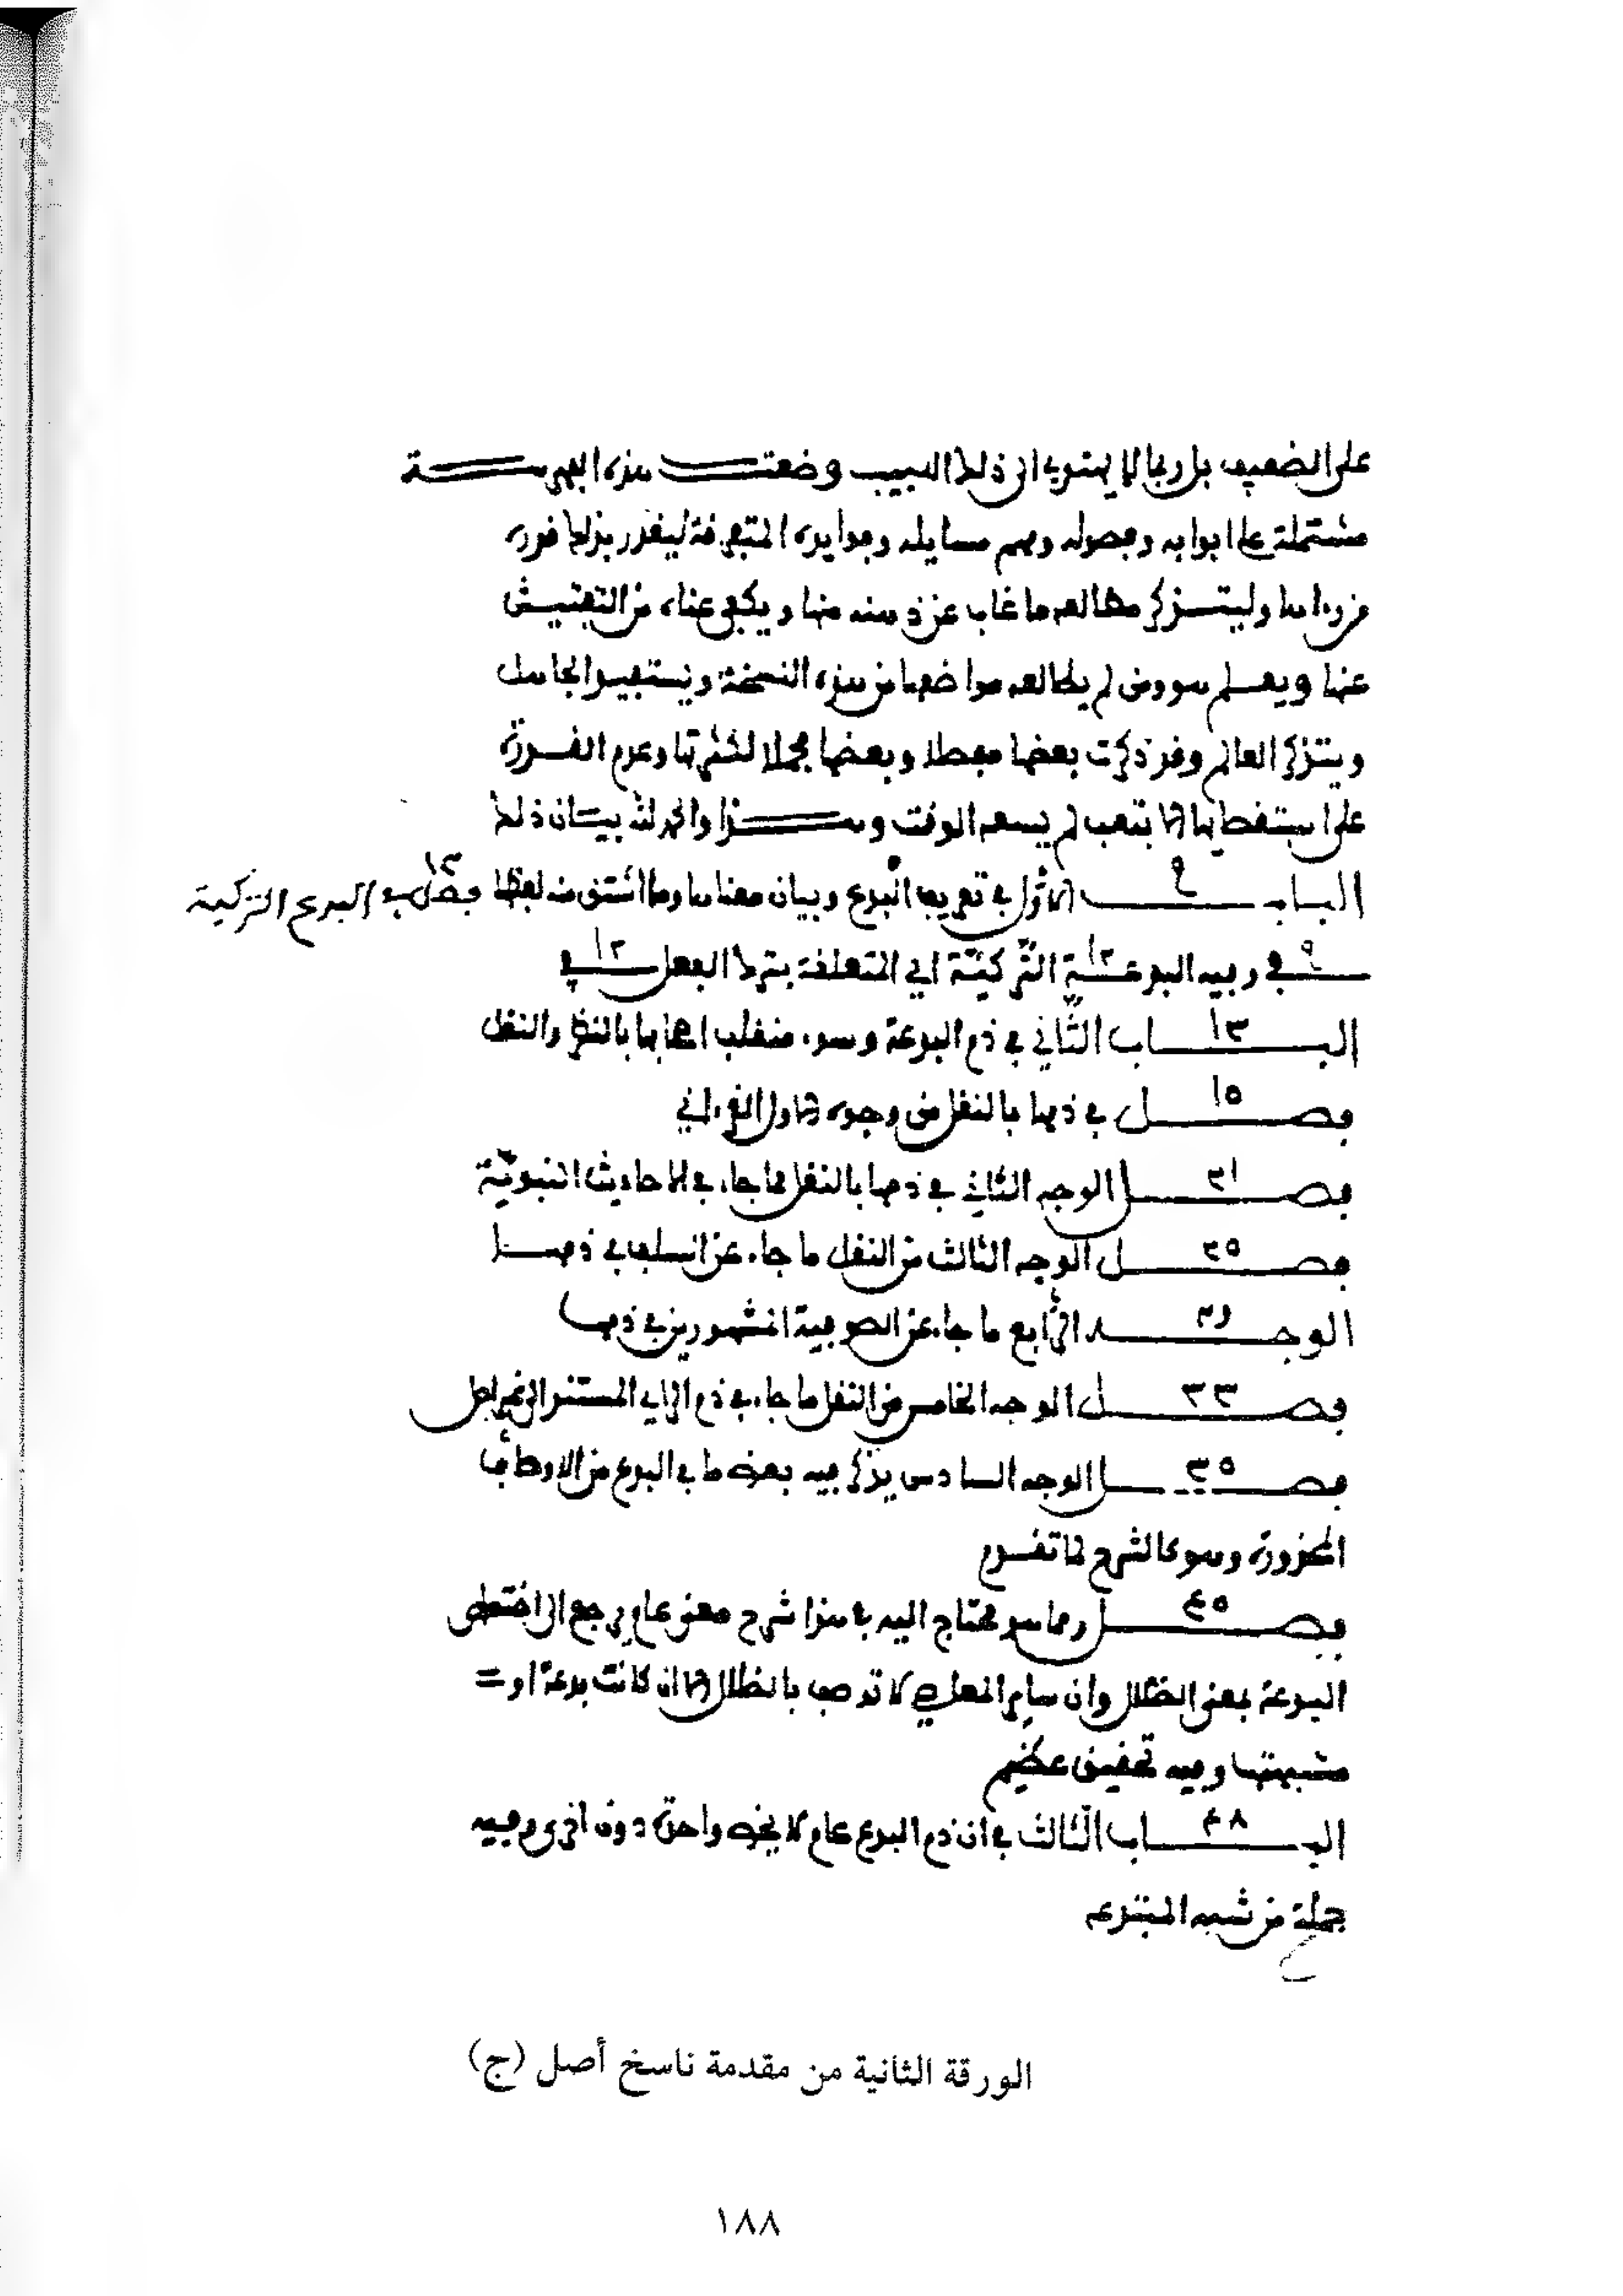 على الضعيف بل ربما لا يهتدي الى ذلك اللبيب وضعت هذه الفهرسة
مشتملة على ابوابه وفصوله ومهم مسايله وفوايده المتفرقة ليقدر بذلك قدره
من راها وليتذكر مطالعه ما غاب عن ذهنه منها ويكفى عناء من التفتيش
عنها ويعلم هو ومن لم يطالعه مواضعها من هذه النسخة ويستفيد الجاهل
ويتذكر العالم وقد ذكرت بعضها مفصلا وبعضها مجملا لكثرتها وعدم القدرة
على استقصايها الا بتعب لم يسعه الوقت وهذا والحمد لله بيان ذلك
البـاب ٩ الاول في تعريف البدع وبيان معناها وما اشتق منه لفظها فصل في البدع التركية ١٣
٩ في وفيه البدعة ١٢ التركية اي المتعلقة بترك الفعل ١٢ في
البـ ١٣ ـاب الثاني في ذم البدعة وسوء منقلب اصحابها بالنظر والنقل
فصـ ١٥ ـل في ذمها بالنقل من وجوه الاول القرءاني
فصـ ٢١ ـل الوجه الثاني في ذمها بالنقل مما جاء في الاحاديث النبوية
فصـ ٢٥ ـل الوجه الثالث من النقل ما جاء عن السلف في ذمها
الوجـ ـه الرابع ما جاء عن الصوفية المشهورين في ذمها
فصـ ٣٣ ـل الوجه الخامس من النقل ما جاء في ذم الراي المستند الى غير اصل
فصـ ٣٥ ـل الوجه السادس يذكر فيه بعض ما في البدع من الاوصاف
المحذورة وهو كالشرح لما تقدم
فصـ ٤٥ ـل ومما هو محتاج اليه في هذا شرح معنى عام يرجع الى اختصاص
البدعة بمعنى الضلال وان ساير المعاصي لا توصف بالضلال الا ان كانت بدعة او =
مشبهتها وفيه تحقيق عظيم
البـ ٤٨ ـاب الثالث في ان ذم البدع عام لا يخص واحدة دون اخرى وفيه
جملة من شبه المبتدعه
الورقة الثانية من مقدمة ناسخ أصل (ج)
١٨٨